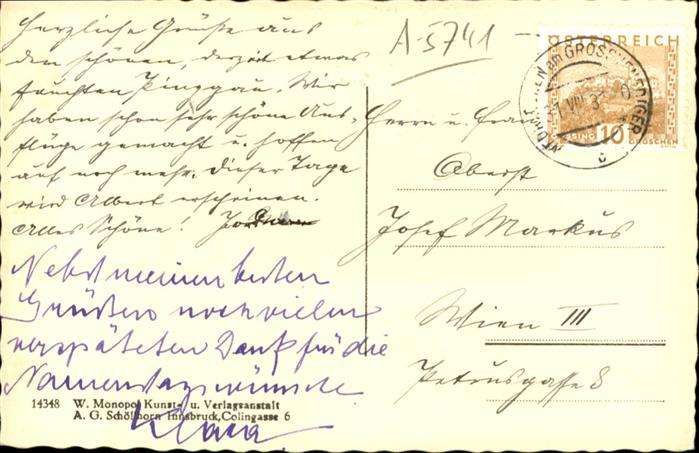 Herzliche Grüße aus
den schönen, derzeit etwas
feuchten Pinzgau. Wir
haben schon sehr schöne Aus-
flüge gemacht u. hoffen
auf noch mehr. Dieser Tage
wird Albert erscheinen.
Alles Schöne!
Nebst meinen besten
Grüßen noch vielen
verspäteten Dank für die
Namenstagswünsche
Klara
14348 W. Monopol Kunst- u. Verlagsanstalt
A. G. Schöllhorn Innsbruck, Colingasse 6
A-5741
ÖSTERREICH
am GROSSVENEDIGER
10
GROSCHEN
Herrn u. Frau
Oberst
Josef Markus
Wien III
Petrusgasse 8